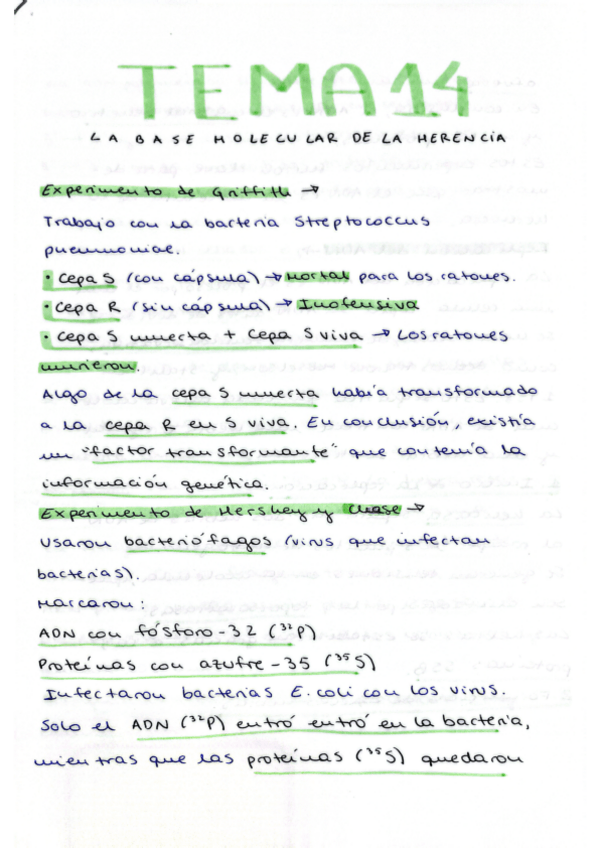 TEMA 14
LA BASE MOLECULAR DE LA HERENCIA
Experimento de Griffith →
Trabajo con la bacteria Streptococcus
pneumoniae.
• Cepa S (con cápsula) → mortal para los ratones.
• Cepa R (sin cápsula) → Inofensiva
• Cepa S muerta + Cepa S viva → Los ratones
murieron.
Algo de la cepa S muerta había transformado
a la cepa R en S viva. En conclusión, existía
un "factor transformante" que contenía la
información genética.
Experimento de Hershey y Chase →
Usaron bacteriófagos (virus que infectan
bacterias).
Marcaron:
ADN con fósforo-32 (³²P)
Proteínas con azufre-35 (³⁵S)
Infectaron bacterias E. coli con los virus.
Solo el ADN (³²P) entró entró en la bacteria,
mientras que las proteínas (³⁵S) quedaron